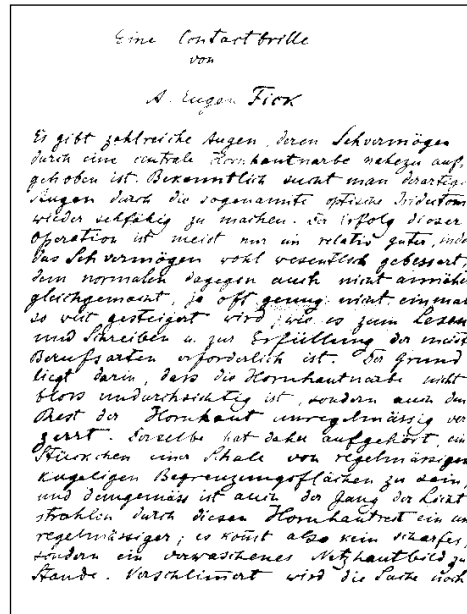 Eine Contactbrille
von
A. Eugen Fick
Es gibt zahlreiche Augen, deren Sehvermögen
durch eine centrale Hornhautnarbe nahezu auf,
gehoben ist. Bekanntlich sucht man derartige
Augen durch die sogenannte optische Iridectom
wieder sehfähig zu machen. Der Erfolg dieser
Operation ist meist nur ein relativ guter, inde
das Sehvermögen wohl wesentlich gebessert,
dem normalen dagegen auch nicht annähe
gleichgemacht, ja oft genug nicht einmal
so weit gesteigert wird, wie es zum Lesen
und Schreiben u. zur Erfüllung der meist
Berufsarten erforderlich ist. Der Grund
liegt darin, dass die Hornhautnarbe nicht
bloss undurchsichtig ist, sondern auch den
Rest der Hornhaut unregelmässig ver
zerrt. Derselbe hat daher aufgehört, ein
Stückchen einer Schale von regelmässigen
kugeligen Begrenzungsflächen zu sein,
und demgemäss ist auch der Gang der Licht
strahlen durch diesen Hornhautrest ein un
regelmässiger; es komt also kein scharfes,
sondern ein verwaschenes Netzhautbild zu
Stande. Verschlimert wird die Sache noch